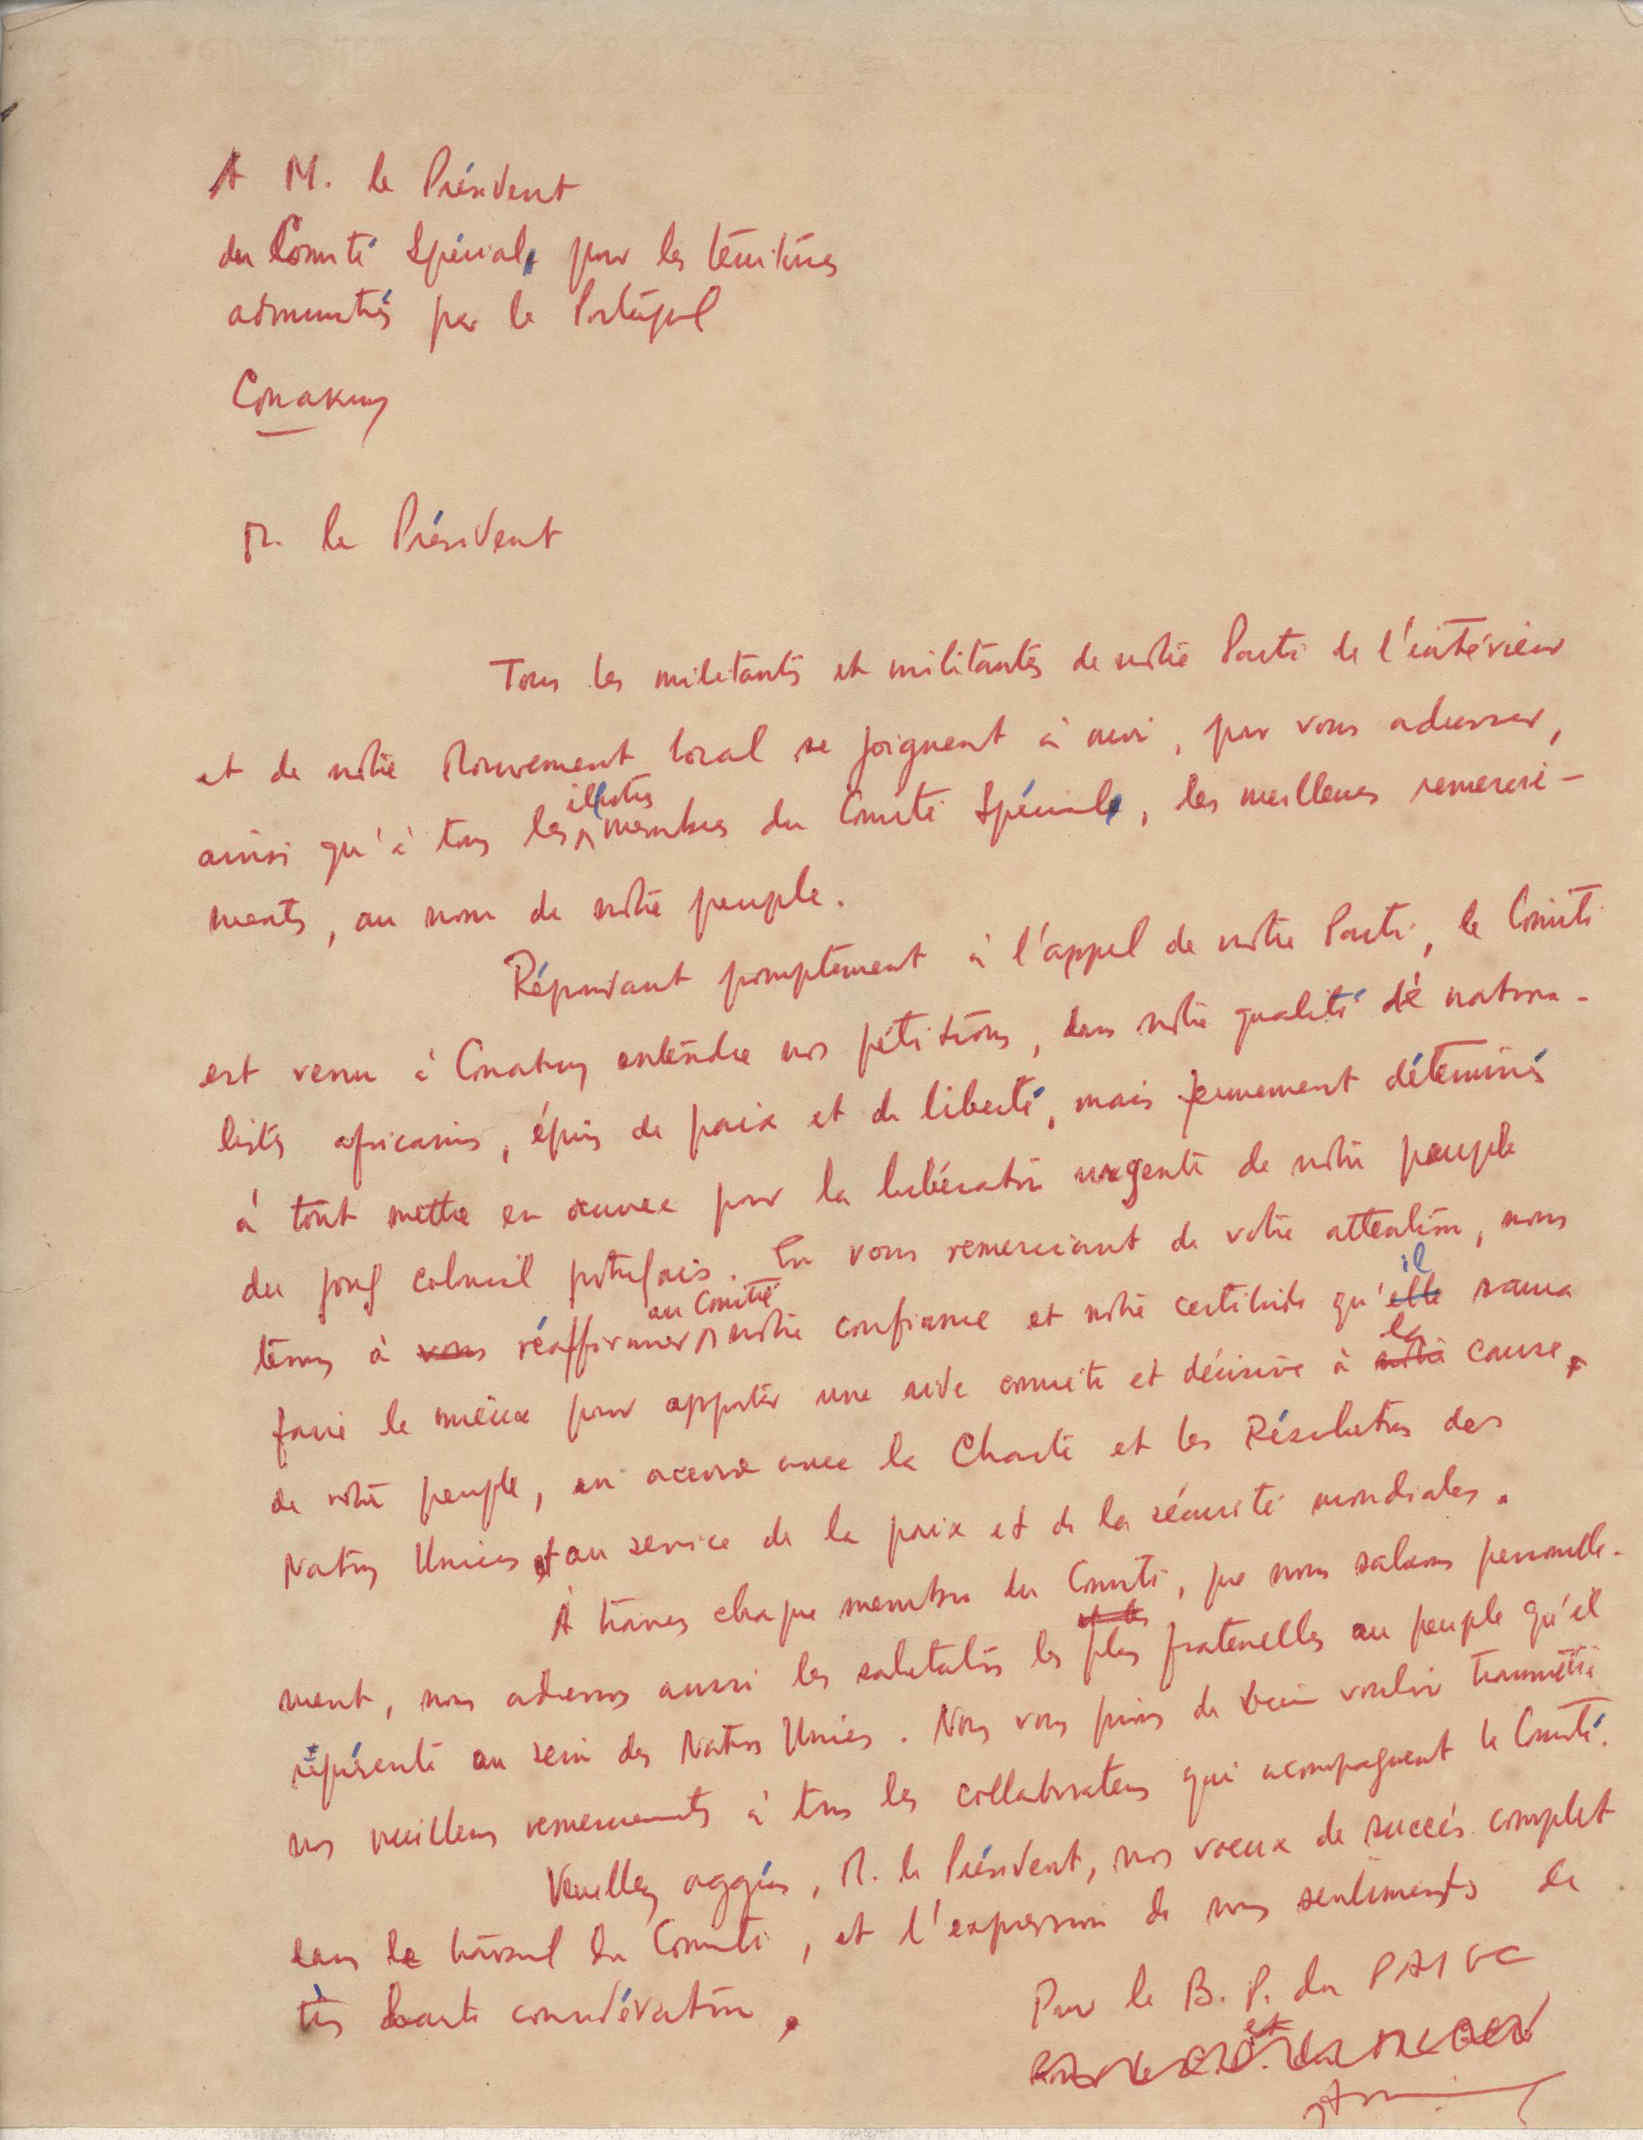 A M. le Président
du Comité Spécial, pour les territoires
administrés par le Portugal
Conakry
M. le Président
Tous les militants et militantes de notre Parti de l'intérieur
et de notre Mouvement local se joignent à moi, pour vous adresser,
ainsi qu'à tous les illustres membres du Comité Spécial, les meilleurs remerci-
ments, au nom de notre peuple.
Répondant promptement à l'appel de notre Parti, le Comité
est venu à Conakry entendre nos pétitions, dans notre qualité de nationa-
listes africains, épris de paix et de liberté, mais fermement déterminés
à tout mettre en œuvre pour la libération urgente de notre peuple
du joug colonial portugais. En vous remerciant de votre attention, nous
tenons à vous réaffirmer au Comité notre confiance et notre certitude qu'elle il saura
faire le mieux pour apporter une aide concrète et décisive à notre la cause
de notre peuple, en accord avec la Charte et les Résolutions des
Nations Unies et au service de la paix et de la sécurité mondiales.
À travers chaque membre du Comité, que nous saluons personnelle-
ment, nous adressons aussi les salutations les plus fraternelles au peuple qu'il
représente au sein des Nations Unies. Nous vous prions de bien vouloir transmettre
nos meilleurs remerciements à tous les collaborateurs qui acompagnent le Comité.
Veuillez aggréer, M. le Président, nos vœux de succès complet
dans le travail du Comité, et l'expression de nos sentiments de
très haute considération.
Pour le B. P. du PAIGC